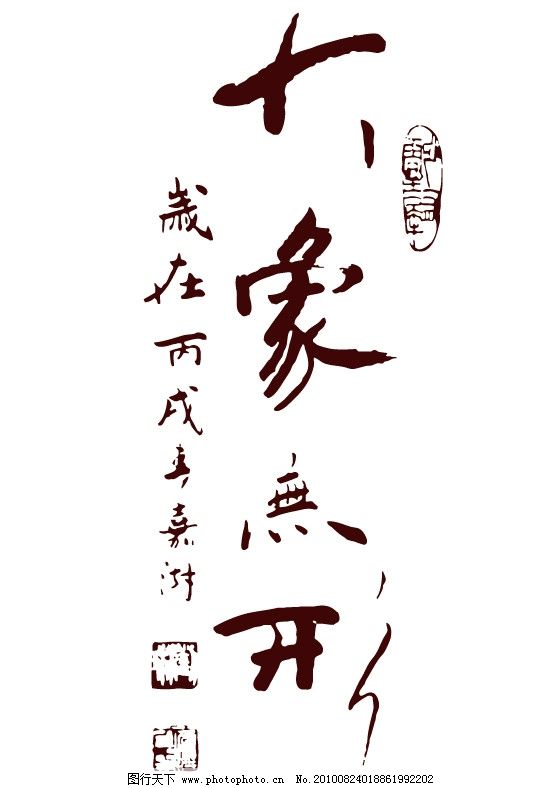 大象無形
歲在丙戌春嘉澍
图行天下 www.photophoto.cn No.20100824018861992202